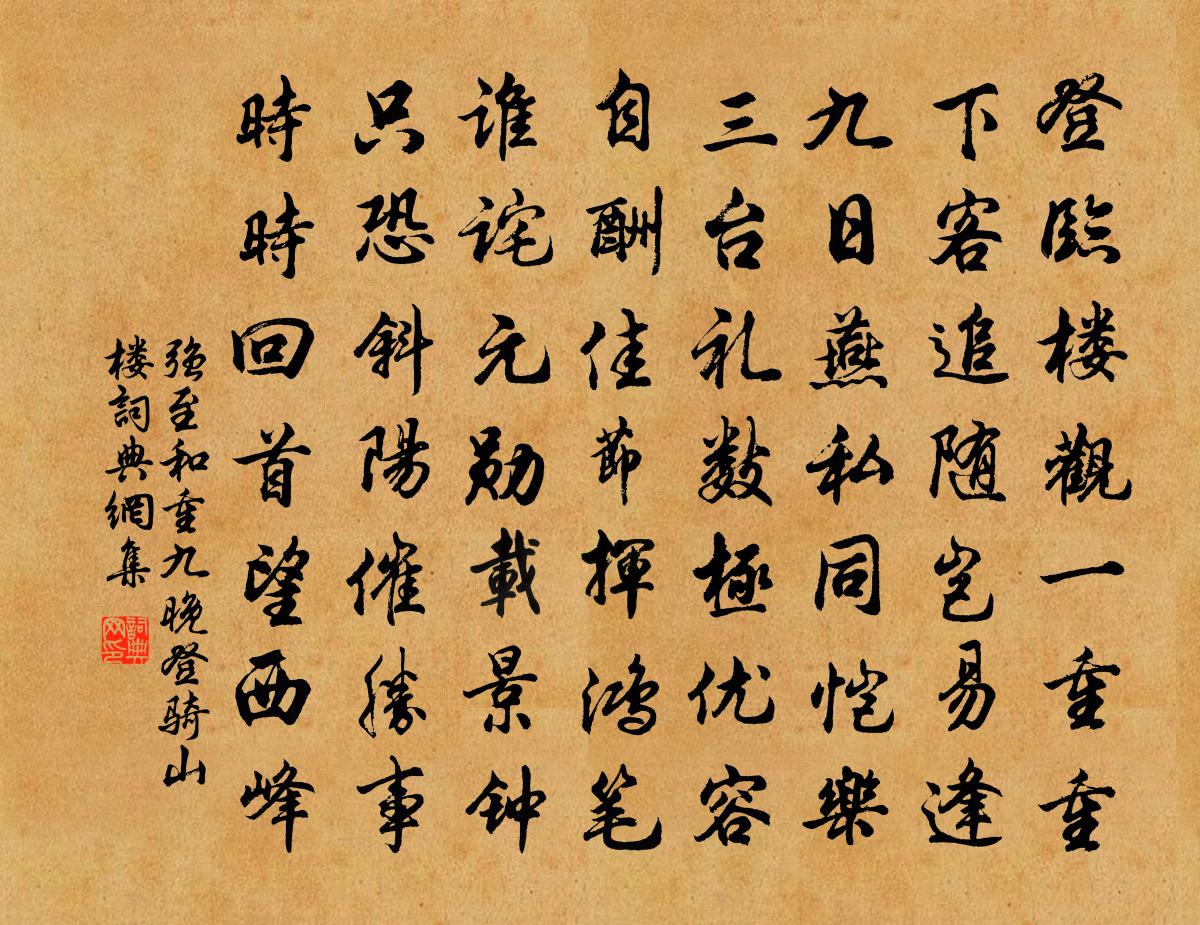 登臨楼觀一重重
下客追随岂易逢
九日燕私同恺樂
三台礼数極优容
自酬佳節揮鸿笔
谁诧元勋載景钟
只恐斜陽催勝事
時時回首望西峰
强至和重九晚登骑山
楼詞典網集
詞典网印